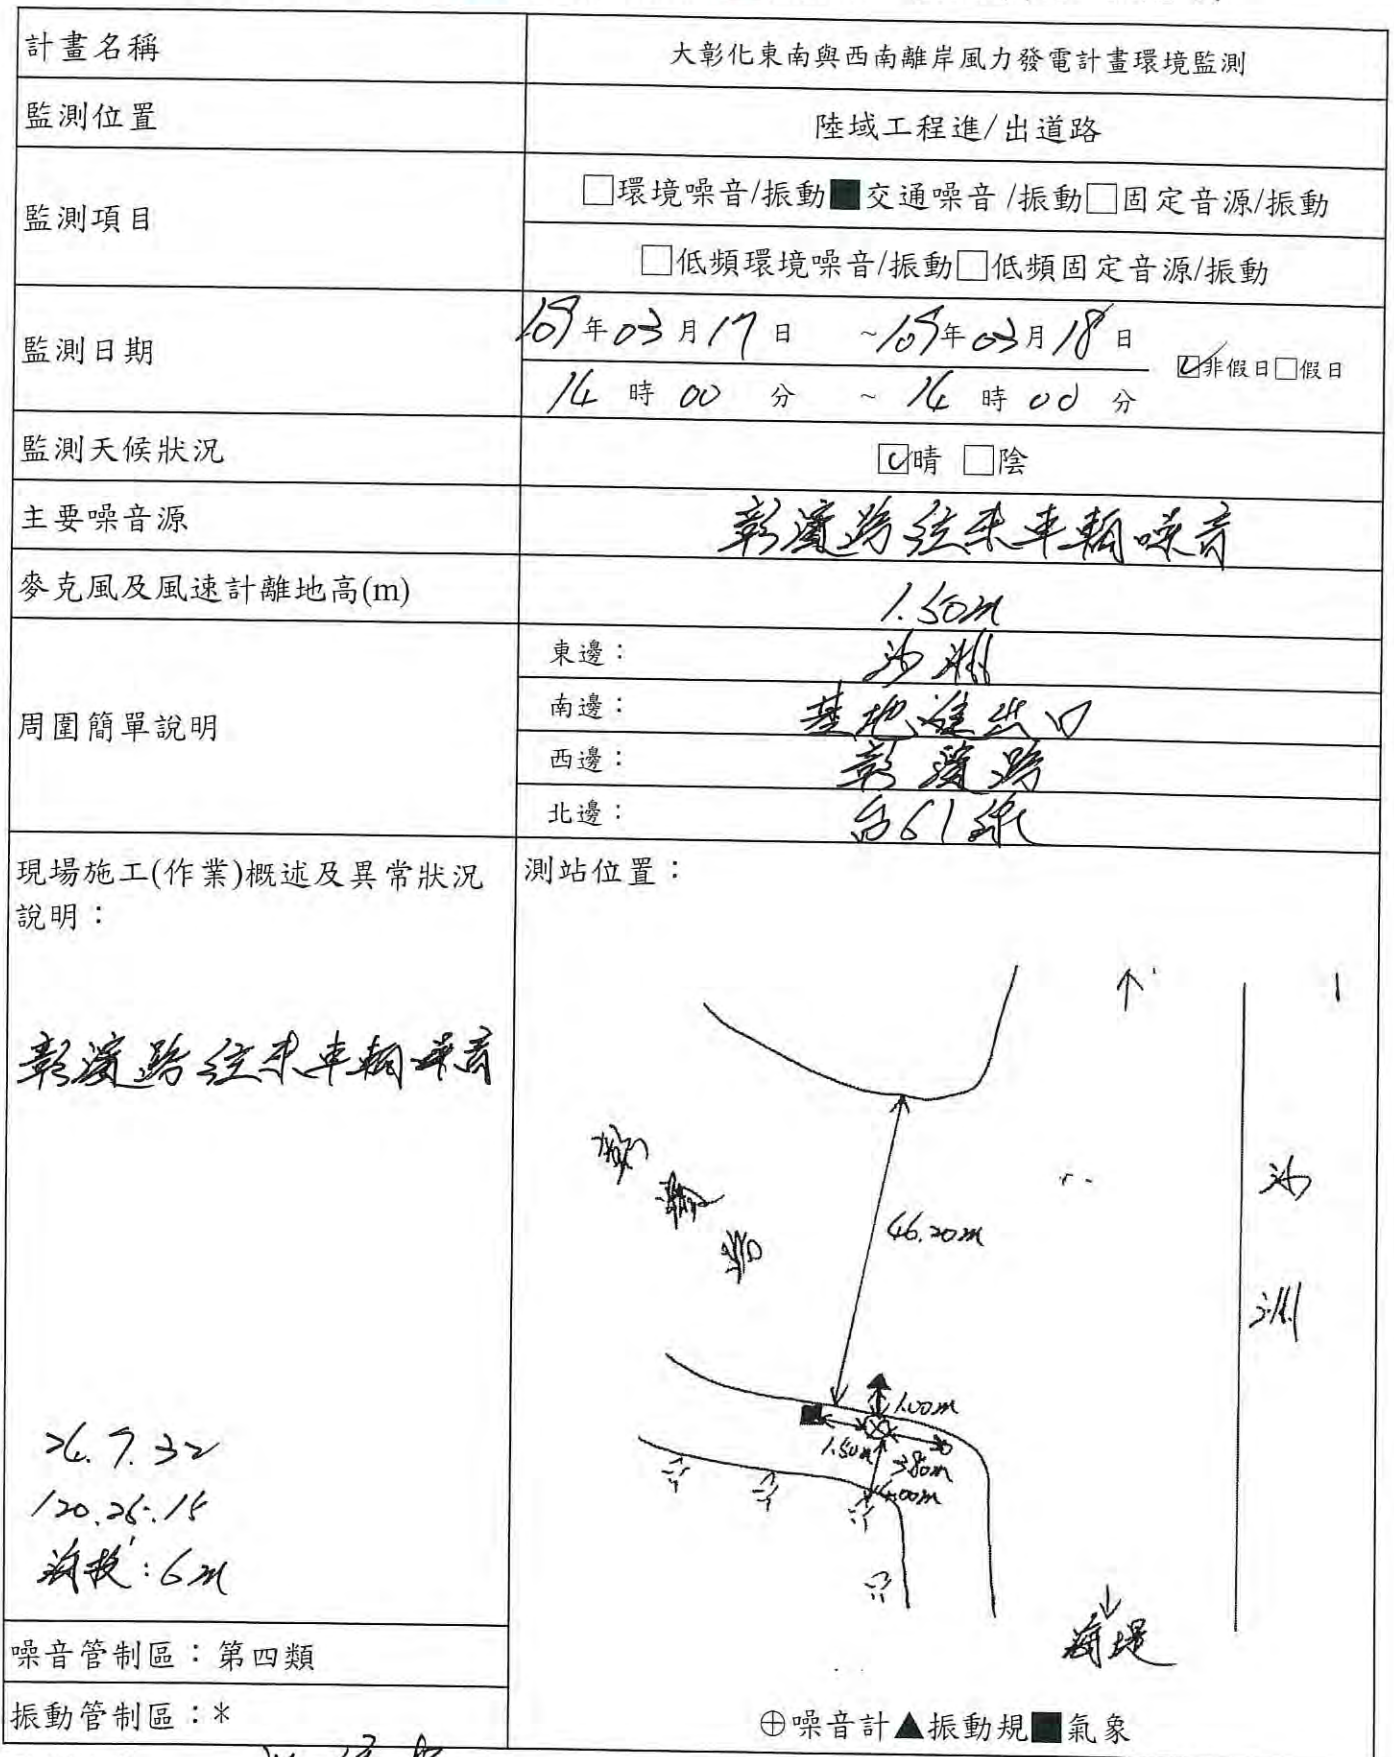 計畫名稱
大彰化東南與西南離岸風力發電計畫環境監測
監測位置
陸域工程進/出道路
監測項目
□環境噪音/振動■交通噪音/振動□固定音源/振動
□低頻環境噪音/振動□低頻固定音源/振動
監測日期
109年03月17日 ~109年03月18日
☑非假日□假日
14時00分 ~ 14時00分
監測天候狀況
☑晴 □陰
主要噪音源
彰濱路往來車輛噪音
麥克風及風速計離地高(m)
1.50m
周圍簡單說明
東邊：沙洲
南邊：基地進出口
西邊：彰濱路
北邊：台61線
現場施工(作業)概述及異常狀況
說明：
彰濱路往來車輛噪音
24.7.32
120.25.15
海拔：6m
噪音管制區：第四類
振動管制區：*
測站位置：
彰濱路
46.20m
沙洲
1.00m
1.50m
3.80m
4.00m
海堤
⊕噪音計▲振動規■氣象